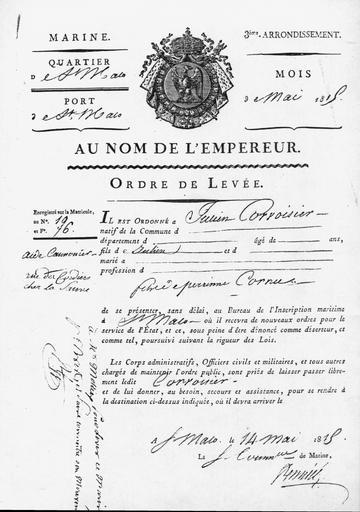 MARINE.
QUARTIER
de St Malo
PORT
de St Malo
3ème. ARRONDISSEMENT.
MOIS
de Mai 1815
AU NOM DE L'EMPEREUR.
ORDRE DE LEVÉE.
Enregistré sur la Matricule,
au N°. 19
et F°. 76
aide Canonnier
rue des Cordiers
chez la
IL EST ORDONNÉ à Julien Corvoisier
natif de la Commune d
département d âgé de ans,
fils d e Julien et d
marié à
profession d
Perrine Cornu
de se présenter, sans délai, au Bureau de l'Inscription maritime
à St Malo où il recevra de nouveaux ordres pour le
service de l'État, et ce, sous peine d'être dénoncé comme déserteur, et
comme tel, poursuivi suivant la rigueur des Lois.
Les Corps administratifs, Officiers civils et militaires, et tous autres
chargés de maintenir l'ordre public, sont priés de laisser passer libre-
ment ledit Corvoisier
et de lui donner, au besoin, secours et assistance, pour se rendre à
la destination ci-dessus indiquée, où il devra arriver le
A St Malo le 14 Mai 1815
Le de Marine,